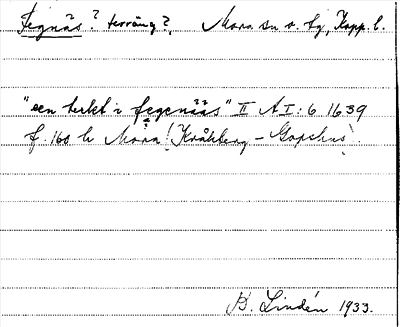 Fegnäs? terräng?, Mora sn o. tg, Kopp. l.
"een teckt i fegenääs" II A I: 6 1639
f. 160 b Mora! (Kråkberg – Gopshus).
B. Lindén 1933.